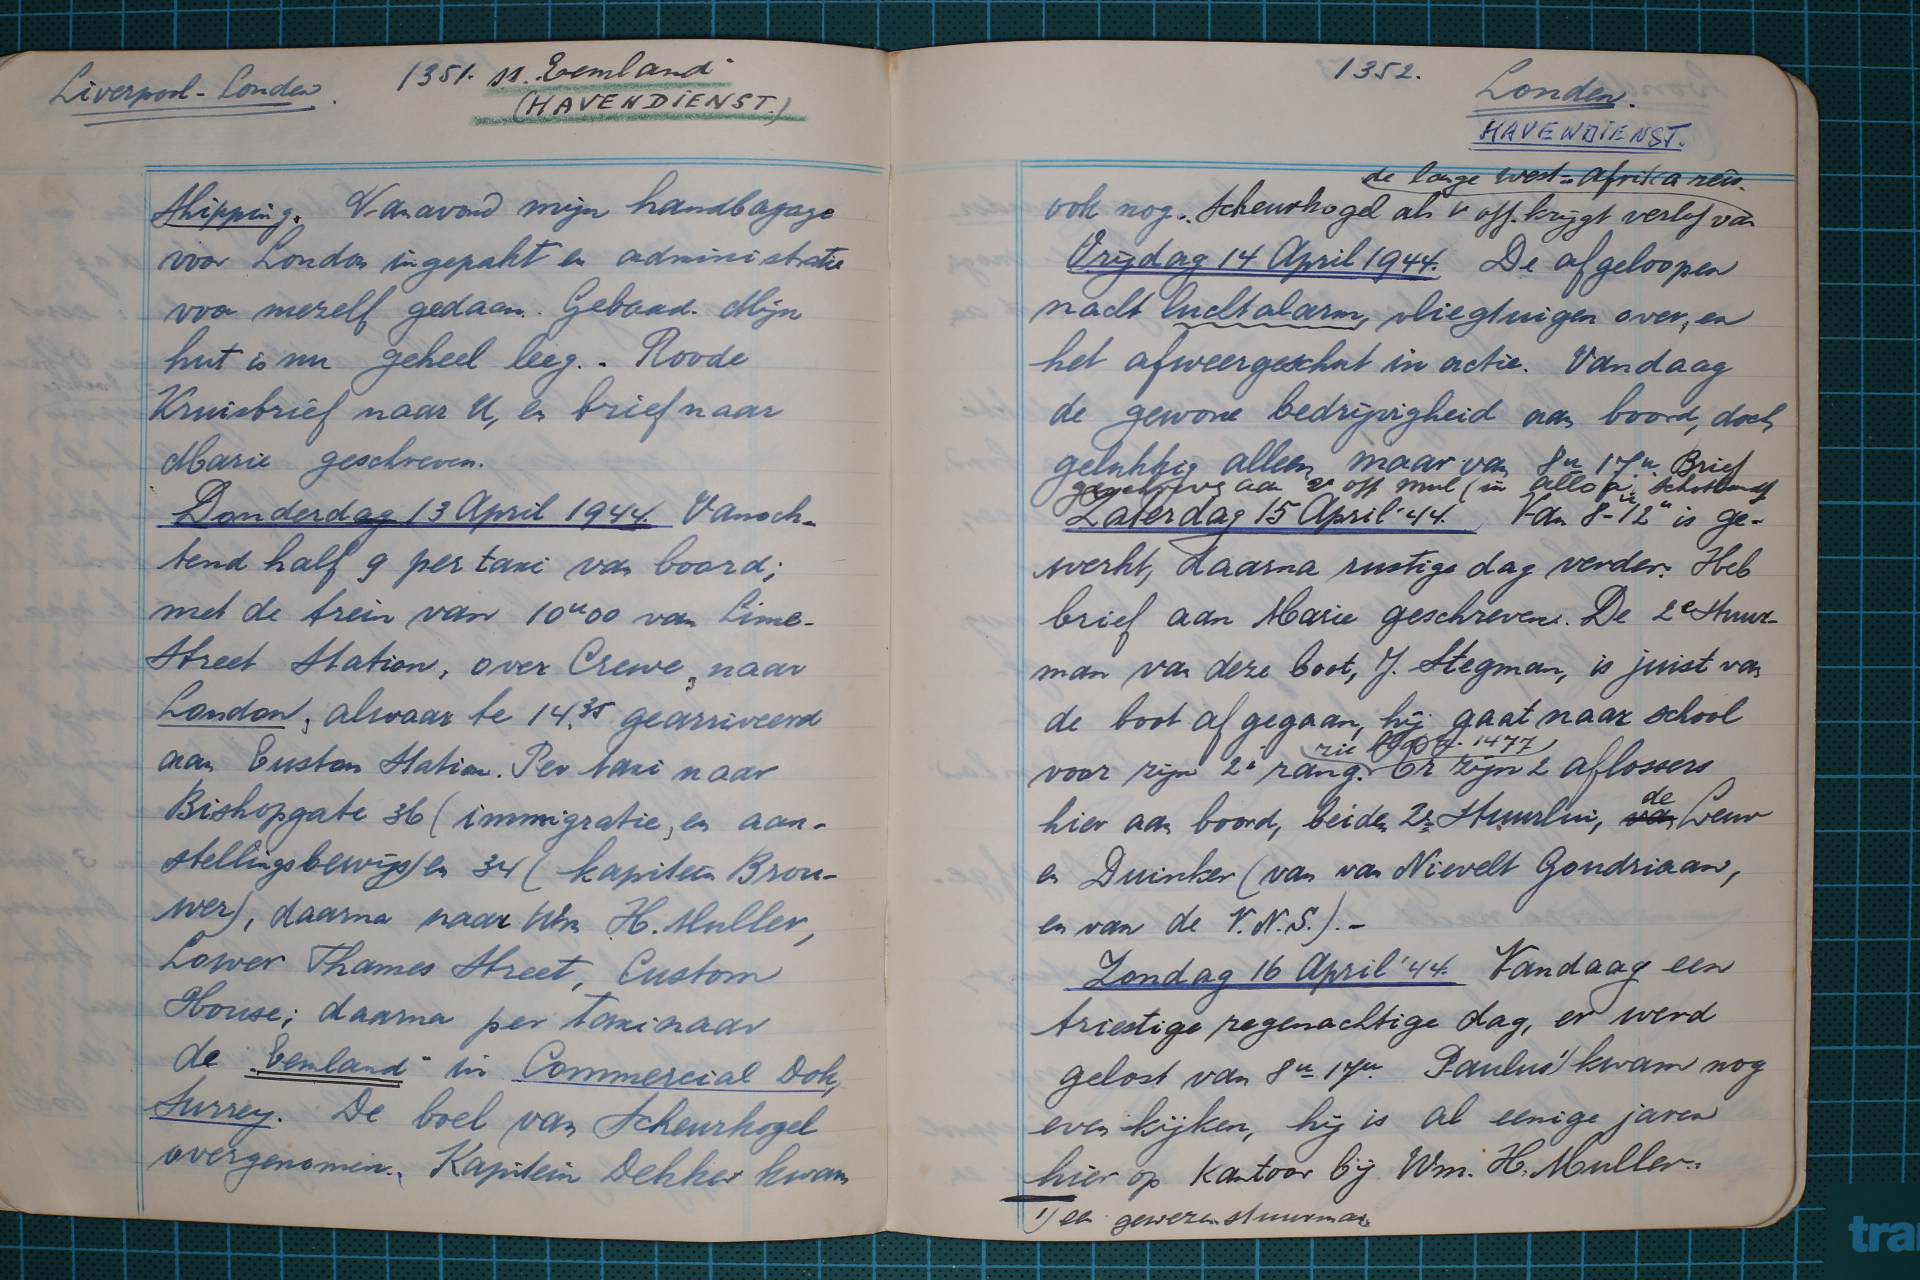 Liverpool - Londen.
1351. ss. Eemland"
(HAVENDIENST.)
shipping. Vanavond mijn handbagage
voor London ingepakt en administratie
voor mezelf gedaan. Gebaad. Mijn
hut is nu geheel leeg. - Roode
Kruisbrief naar U, en brief naar
Marie geschreven.
Donderdag 13 April 1944. Vanoch-
tend half 9 per taxi van boord;
met de trein van 10u00 van Lime-
Street Station, over Crewe, naar
London, alwaar te 14.35 gearriveerd
aan Euston Station. Per taxi naar
Bishopgate 36 (immigratie, en aan-
stellingsbewijs) en 34 (kapitein Brou-
wer), daarna naar Wm H. Muller,
Lower Thames Street, Custom
House; daarna per taxi naar
de "Eemland" in Commercial Dok,
Surrey. De boel van Scheurkogel
overgenomen. Kapitein Dekker kwam
1352.
Londen.
HAVENDIENST.
de lange west-Afrika reis.
ook nog. Scheurkogel als 1e off. krijgt verlof van
Vrijdag 14 April 1944. De afgeloopen
nacht luchtalarm, vliegtuigen over, en
het afweergeschut in actie. Vandaag
de gewone bedrijvigheid aan boord, doch
gelukkig alleen maar van 8u 17u. Brief
geschreven aan 2e off Mul (in Alloa, Schotland)
Zaterdag 15 April '44. Van 8-12u is ge-
werkt, daarna rustige dag verder. Heb
brief aan Marie geschreven. De 2e Stuur-
man van deze boot, J. Stegman, is juist van
de boot afgegaan, hij gaat naar school
zie blz. 1477
voor zijn 2e rang. Er zijn 2 aflossers
hier aan boord, beiden 2e Stuurlui, de Leuw
en Duinker (van van Nievelt Goudriaan,
en van de V.N.S.). -
Zondag 16 April '44. Vandaag een
triestige regenachtige dag, er werd
gelost van 8u 17u. Paulus 1) kwam nog
even kijken, hij is al eenige jaren
hier op kantoor bij Wm. H. Muller.
1) een gewezen stuurman
tra